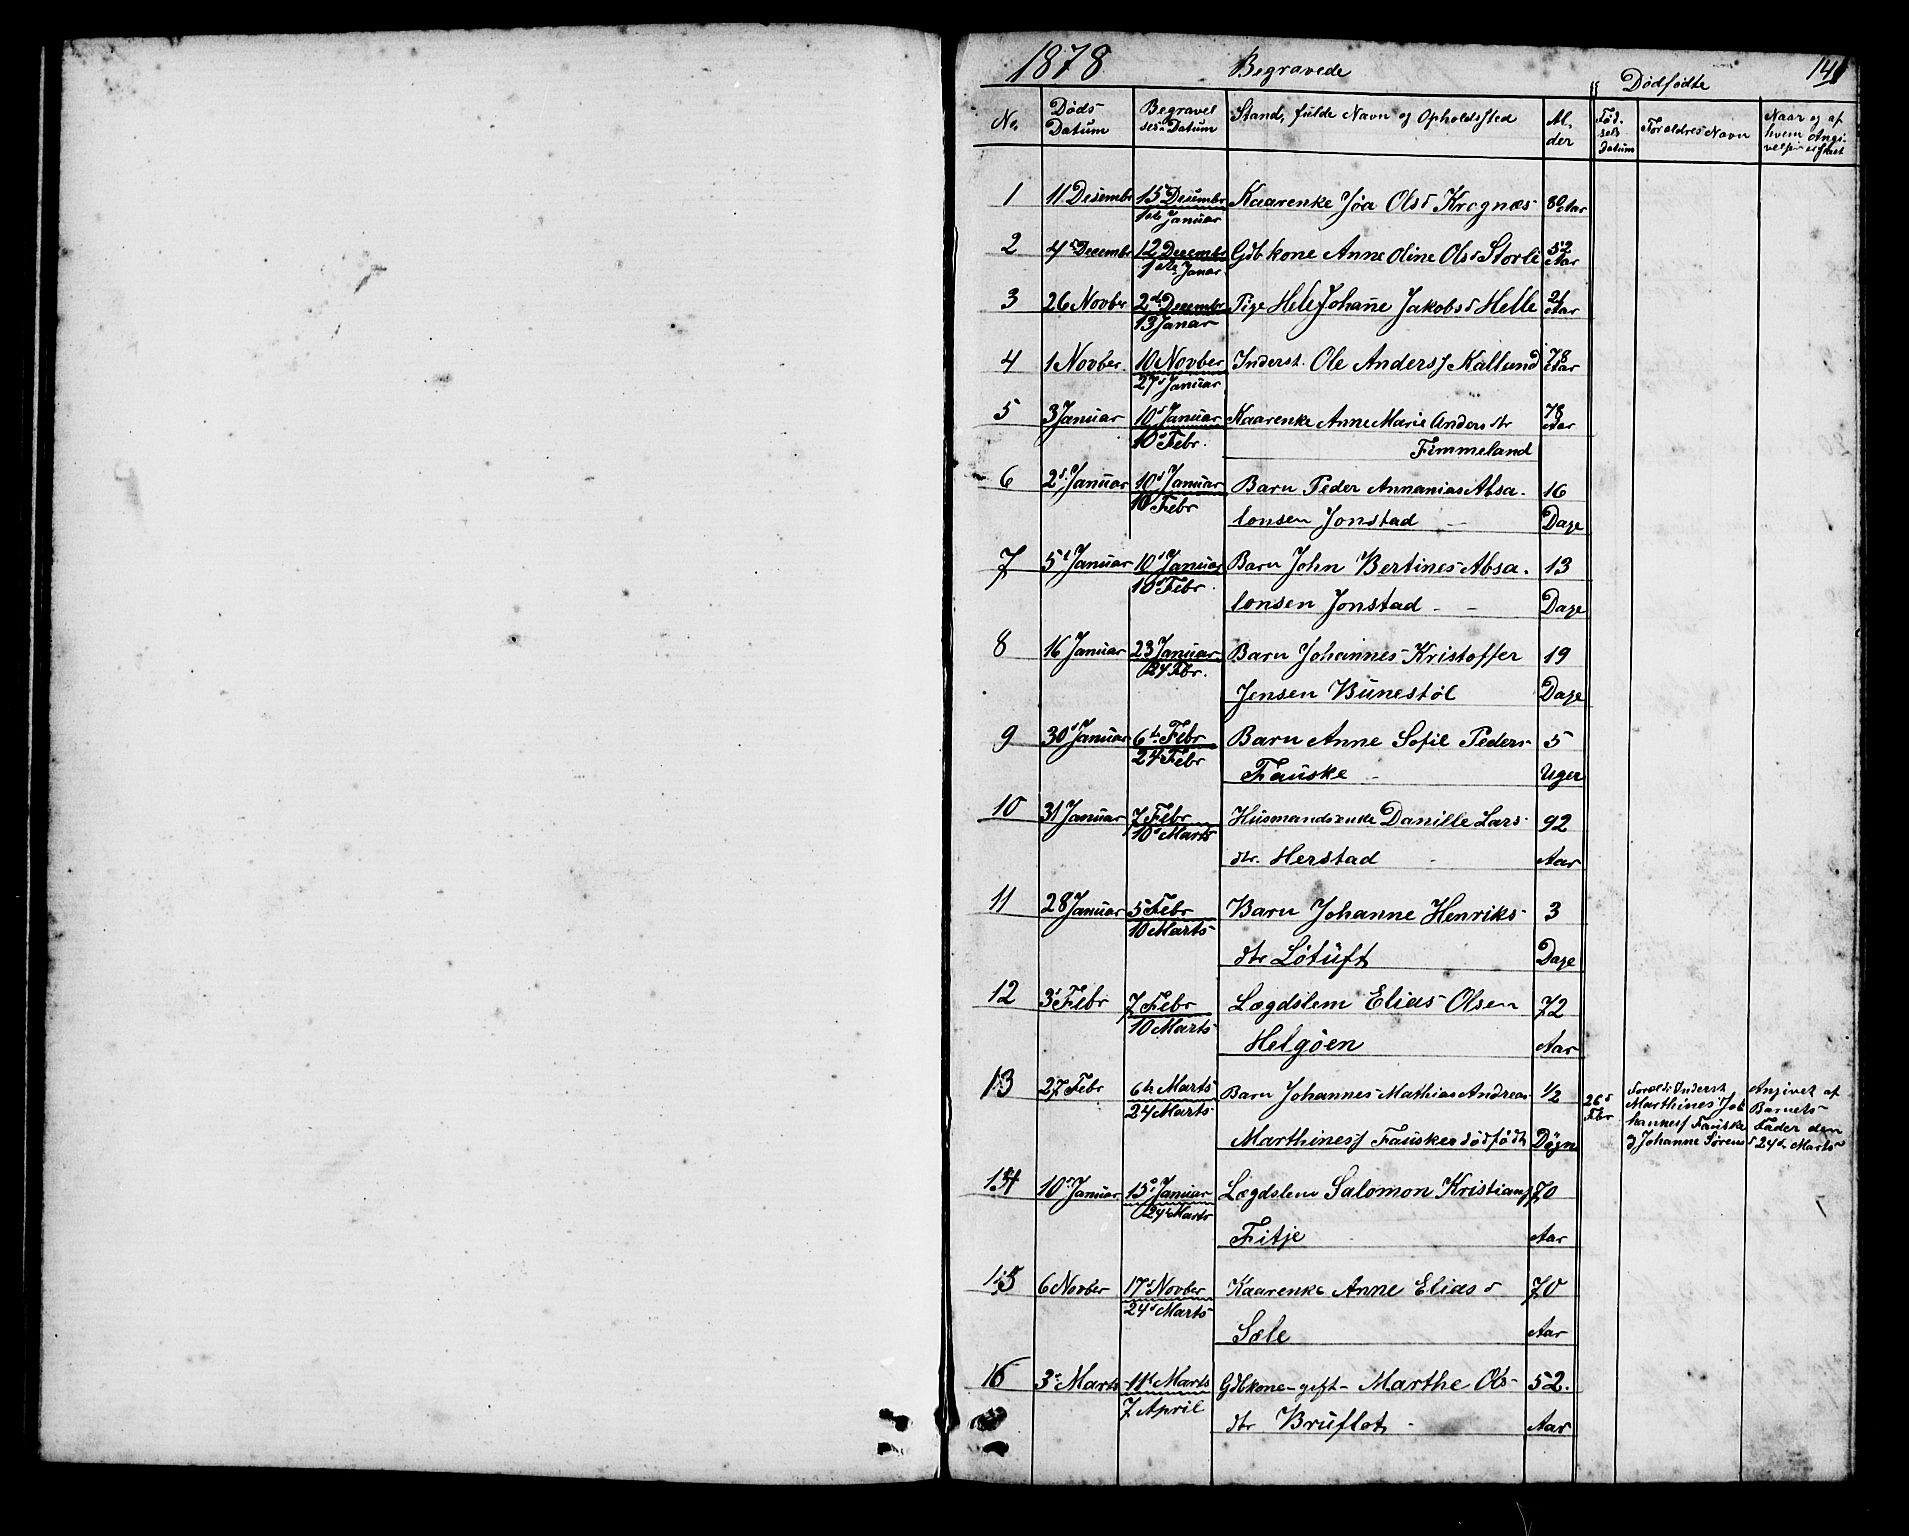 1878 Begravede Dødfødte 141
No. Døds Datum Begravelses Datum Stand, fulde Navn og Opholdssted Alder Fødsels Datum Forældres Navn Naar og af hvem Angivelse er skeet
1 11 Desembr 15 Desembr Kaarenke Jøa Olsd Krognæs 80 Aar
1ste Januar
2 4 Decembr 12 Decembr Gdbkone Anne Oline Olsd Storli 52 Aar
1ste Januar
3 26 Novber 2den Decembr Pige Hele Johañe Jakobsd Helle 21 Aar
13 Januar
4 1 Novber. 10 Novber Inderst. Ole Anders Kallund 78 Aar
27 Januar
5 3 Januar 10 Januar Kaarenke Anne Marie Andersdtr 78 Aar
10 Febr. Fimmeland
6 2 Januar 10 Januar Barn Peder Annanias Absa- 16
10 Febr lonsen Jonstad Dage
7 5 Januar 10 Januar Barn John Bertines Absa- 13
10 Febr. lonsen Jonstad Dage
8 16 Januar 23 Januar Barn Johannes Kristoffer 19
24 Febr. Jensen Bunestøl Dage
9 30 Januar 6 Febr Barn Anne Sofie Peders- 5
24 Febr Fauske Uger
10 31 Januar 7 Febr Husmandsenke Danille Lars- 92
10 Marts dtr. Herstad Aar
11 28 Januar 5 Febr Barn Johanne Henriks- 3
10 Marts dtr Løtuft Dage
12 3 Febr 7 Febr Lægdslem Elias Olsen 72
10 Marts Helgøen Aar
13 27 Febr 6te Marts Barn Johannes Mathias Andreas 1/2 26 Febr Foræld: Inderst Angivet af
24 Marts Marthines Fauske dødfødt Døgn Marthines Johannes Fauske Barnets Fader den
g Johanne Sørensd 24de Marts
14 10 Januar 15 Januar Lægdslem Salomon Kristians 70
24 Marts Fitje Aar
15 6 Novber 17 Novber Kaarenke Anne Eliasd 70
24 Marts Sæle Aar
16 3 Marts 11te Marts Gdbkone-gift- Marthe Ols- 52.
7 April dtr Bruflot Aar